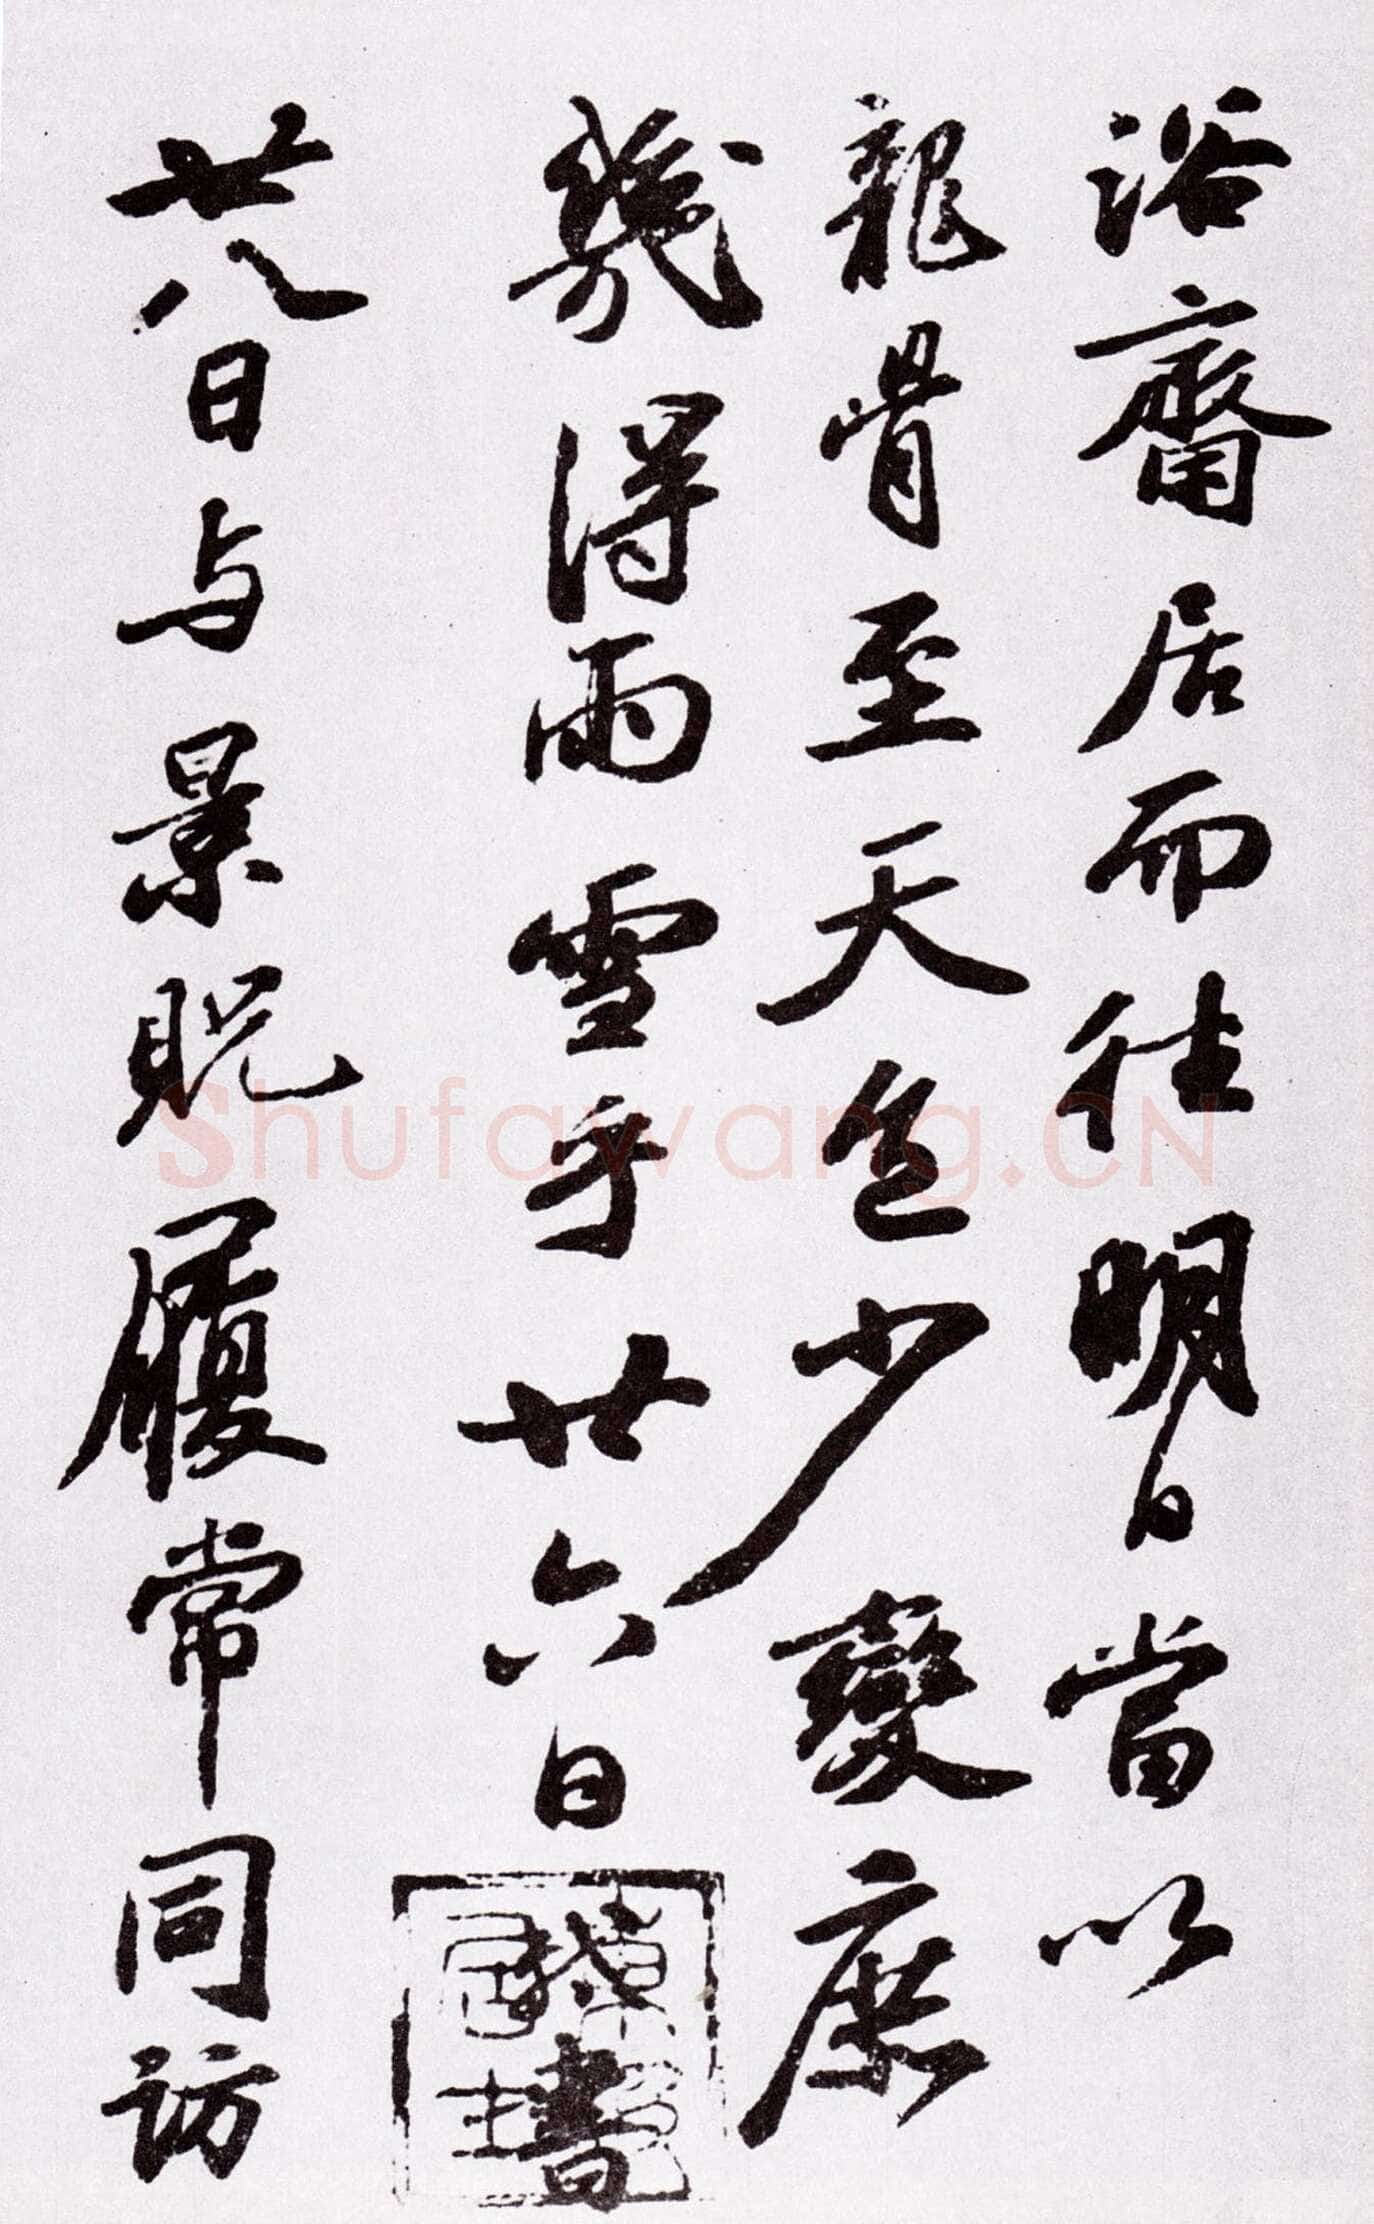 浴齋居而往明日當以
龍骨至天色少變庶
幾得雨雪乎廿六日
書
廿八日与景貺履常同訪
Shufawang.CN